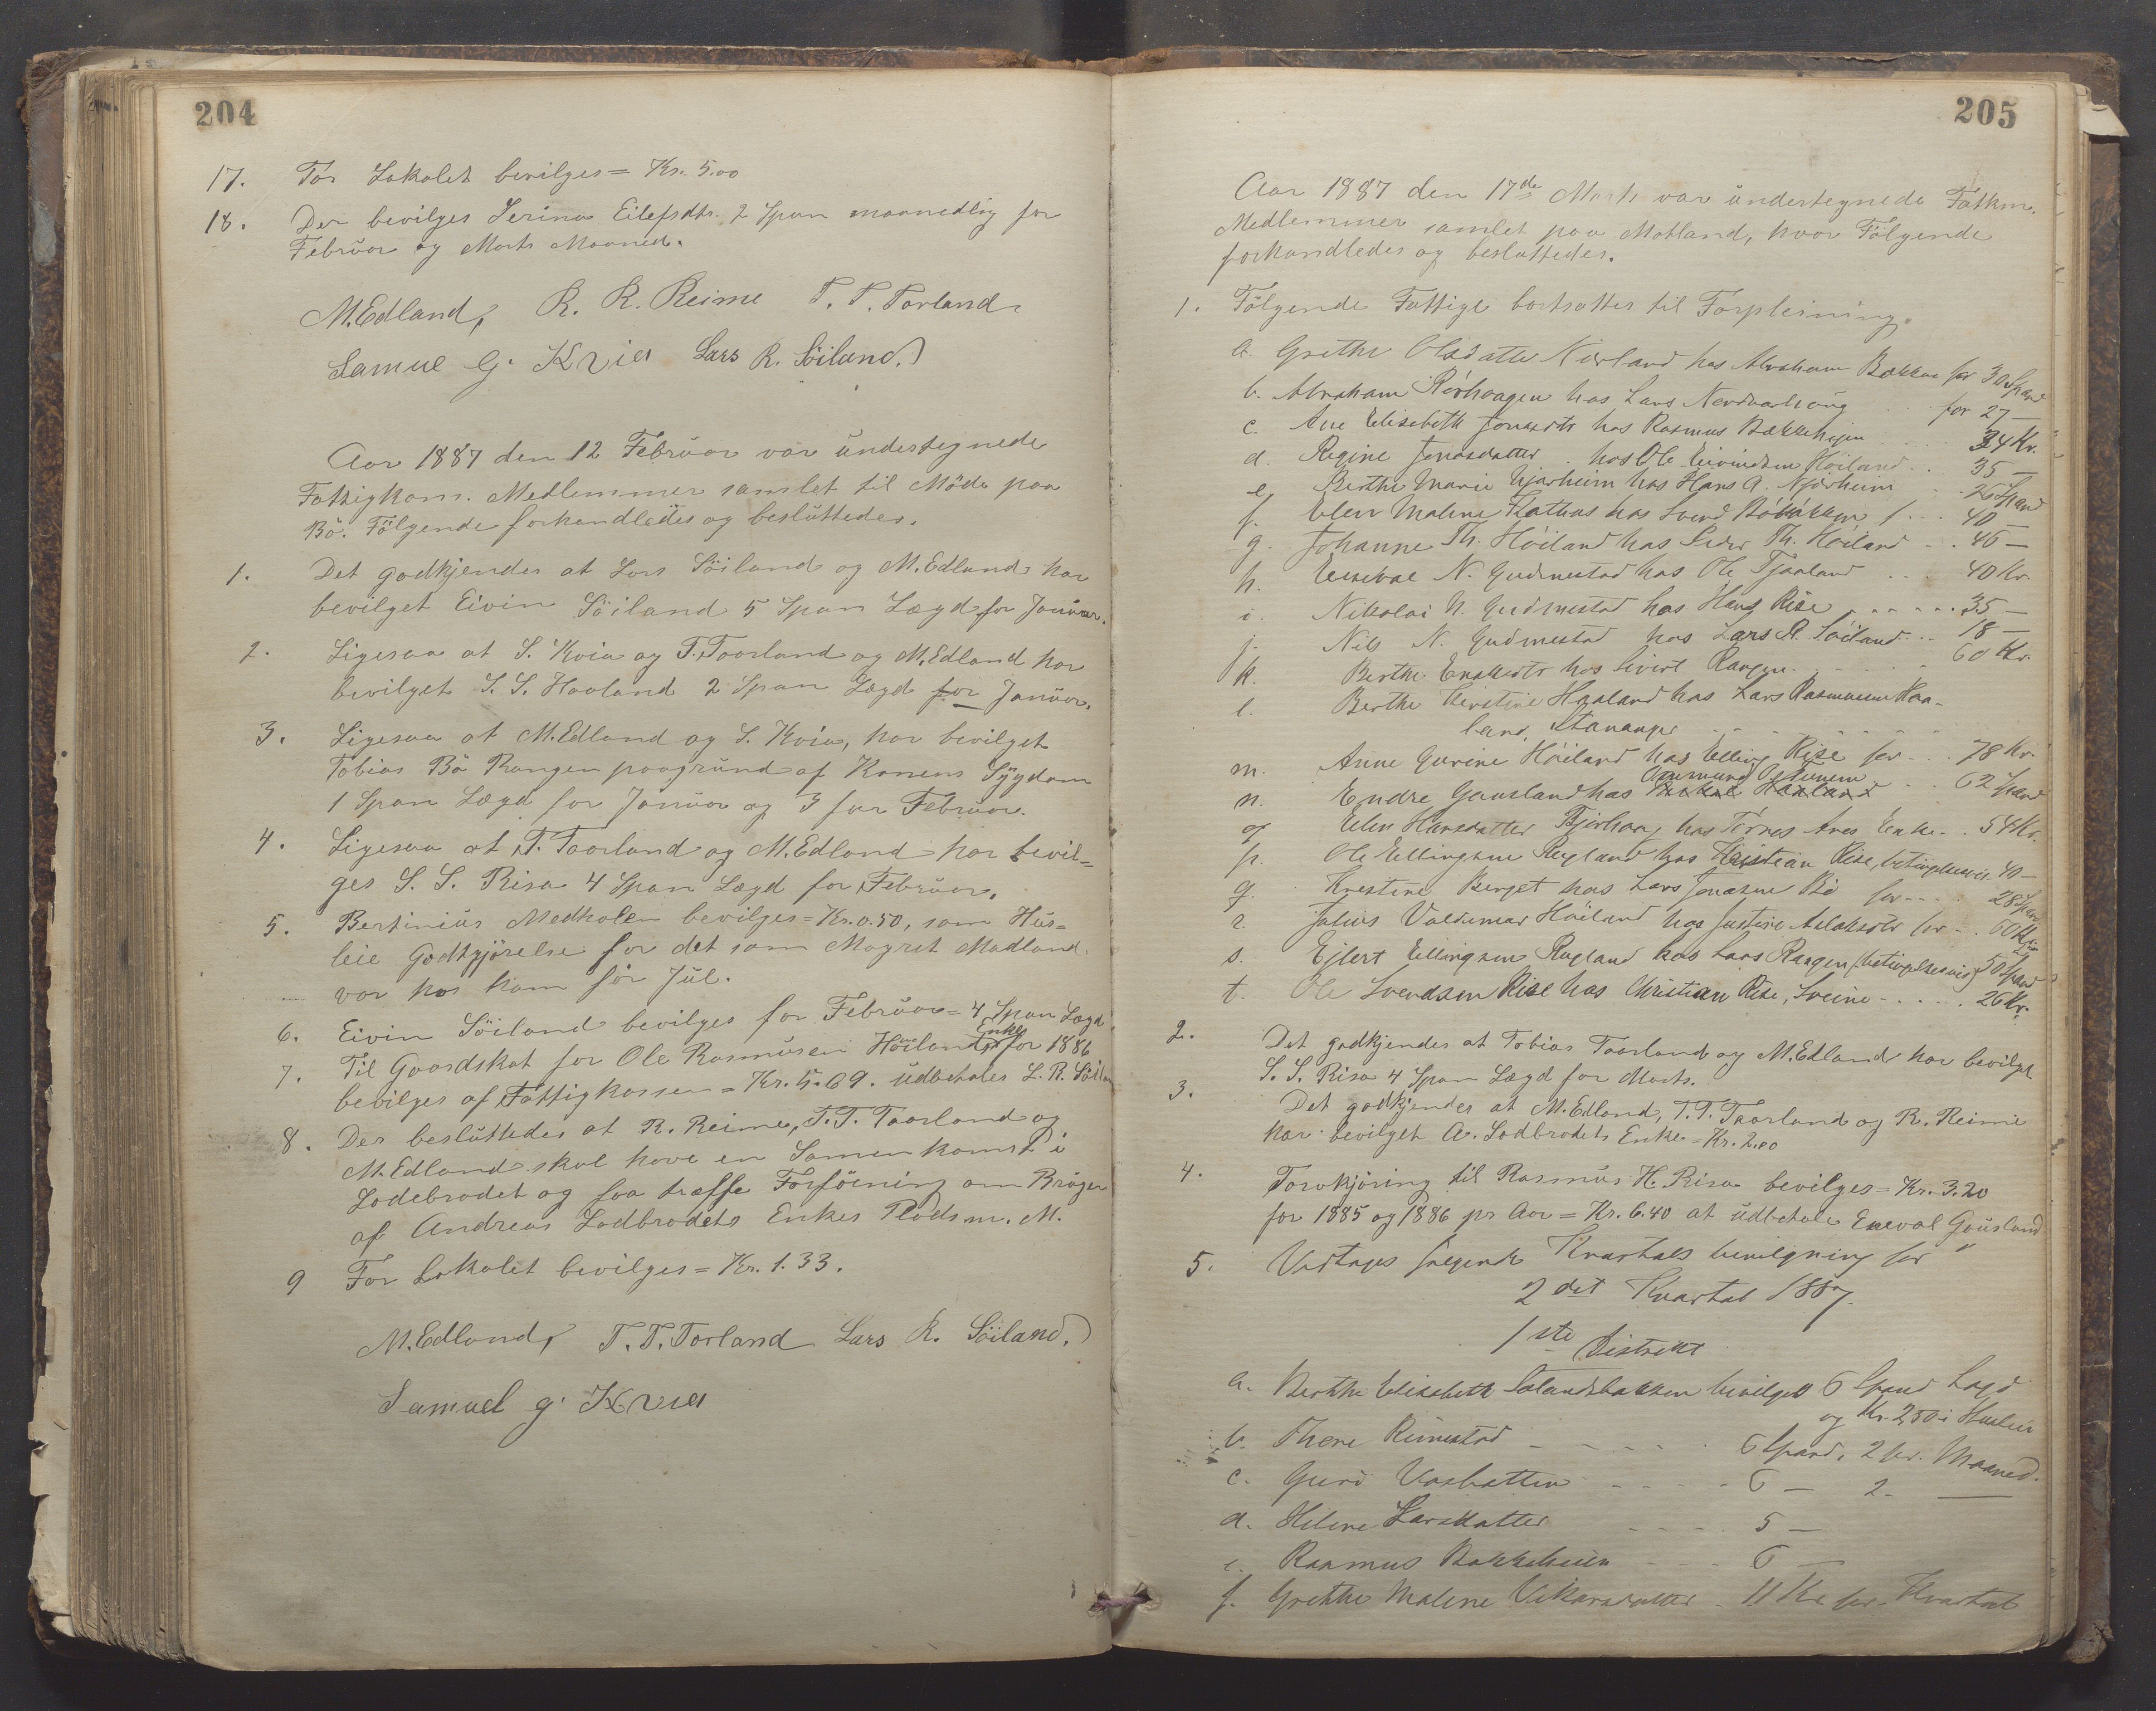 204
17. For Lokalet bevilges = Kr. 5.00
18. Der bevilges Serina Eilefsdtr. 2 Span maanedlig for
Februar og Marts Maaned.
M. Edland, R. R. Reime T. T. Torland
Samuel G. Kvia Lars R. Söiland.
Aar 1887 den 12 Februar var undertegnede
Fattigkom. Medlemmer samlet til Möde paa
Bö. Fölgende forhandledes og besluttedes.
1. Det godkjendes at Lars Söiland og M. Edland har
bevilget Eivin Söiland 5 Span Lægd for Januar.
2. Ligesaa at S. Kvia og T. Taarland og M. Edland har
bevilget S. S. Haaland 2 Span Lægd for Januar.
3. Ligesaa at M. Edland og S. Kvia, har bevilget
Tobias Bö Rangen paagrund af Konens Sygdom
1 Span Lægd for Januar og 3 for Februar.
4. Ligesaa at T. Taarland og M. Edland har bevil=
ges S. S. Risa 4 Span Lægd for Februar.
5. Bertinius Medholen bevilges = Kr. 0.50, som Hus=
leie Godtgjörelse for det som Magret Madland
var hos ham för Jul.
6. Eivin Söiland bevilges for Februar = 4 Span Lægd
7. Til Gaardskat for Ole Rasmusen Höilands Enke for 1886
bevilges af Fattigkassen = Kr. 5.69. udbetales L. R. Söiland
8. Der besluttedes at R. Reime, T. T. Taarland og
M. Edland skal have en Samenkomst i
Lodebrodet og faa træffe Forföining om Brugen
af Andreas Lodbrodets Enkes Plads m. M.
9 For Lokalet bevilges = Kr. 1.33.
M. Edland, T. T. Torland Lars R. Söiland.
Samuel G. Kvia
205
Aar 1887 den 17de Marts var undertegnede Fatkm.
Medlemmer samlet paa Motland, hvor Fölgende
forhandledes og besluttedes.
1. Fölgende Fattige bortsattes til Forpleining.
a. Grethe Olsdatter Nærland hos Abraham Bakken for 30 Spand
b. Abraham Rörhaagen hos Lars Nordvarhaug for 27 —
c. Ane Elisabeth Jonasdtr hos Rasmus Bækkeheien 34 Kr.
d. Regine Jonasdatter hos Ole Eivindsen Höiland 35 —
e. Berthe Marie Njærheim hos Hans A. Njærheim 25 Spand
f. Elen Malene hos Svend 40 —
g. Johanne Th. Höiland hos Peder Th. Höiland 45 —
h. N. Gudmestad hos Ole Tjaaland 40 Kr.
i. Nikolai N. Gudmestad hos Hans Rise 35 —
j. Nils N. Gudmestad hos Lars R. Söiland 18 —
k. Berthe hos Sivert Rangen 60 Kr.
l. Berthe Kerstine Haaland hos Lars Rasmussen Haa-
land, Stavanger
m. Anne Gurine Höiland hos Elling Rise for 78 Kr.
n. Endre Gausland hos 62 Spand
o. Elen Hansdatter hos Enke 54 Kr.
p. Ole Ellingsen Rugland hos Kristian Rise, betingelsesvis 40 —
q. Kristine Berget hos Lars Jonasen Bö for 28 Spand
r. Julius Valdemar Höiland hos Justine Aslaksdtr for 60 Kr.
s. Ejlert Ellingsen Rugland hos Lars Rangen (betingelsesvis) 50 Spand
t. Ole Svendsen Rise hos Christian Rise, Sveine 26 Kr.
2. Det godkjendes at Tobias Taarland og M. Edland har bevilget
S. S. Risa 4 Span Lægd for Marts.
3. Det godkjendes at M. Edland, T. T. Taarland og R. Reime
har bevilget A. Lodbrodets Enke = Kr. 2.00
4. Torvkjöring til Rasmus H. Risa bevilges = Kr. 3.20
for 1885 og 1886 pr Aar = Kr. 6.40 at udbetale Eneval Gausland
5. Vedtages fölgende Kvartals bevilgning for
2det Kvartal 1887.
1ste Distrikt
a. Berthe Elisabeth bevilges 6 Spand Lægd
og Kr. 2,50 i Husleie
b. Thore Rimestad 6 Spand, 2 pr. Maaned.
c. Guro 6 — 2 —
d. Helene Larsdatter 5 —
e. Rasmus Bakkeheien 6 —
f. Grethe Malene 11 Kr for Kvartal